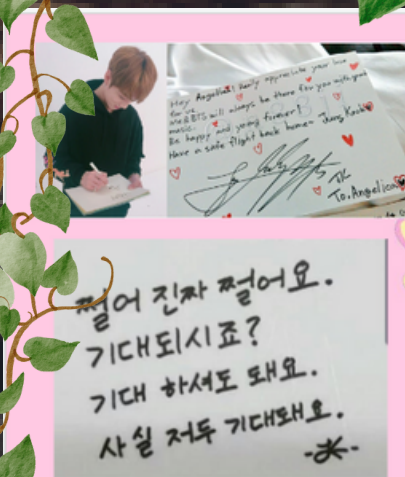 Hey Angelica! I really appreciate your love
for us.
Me & BTS will always be there for you with great
music.
Be happy and young forever
Have a safe flight back home~ Jung Kook
JK
To. Angelica
쩔어 진짜 쩔어요.
기대되시죠?
기대 하셔도 돼요.
사실 저두 기대돼요.
-JK-